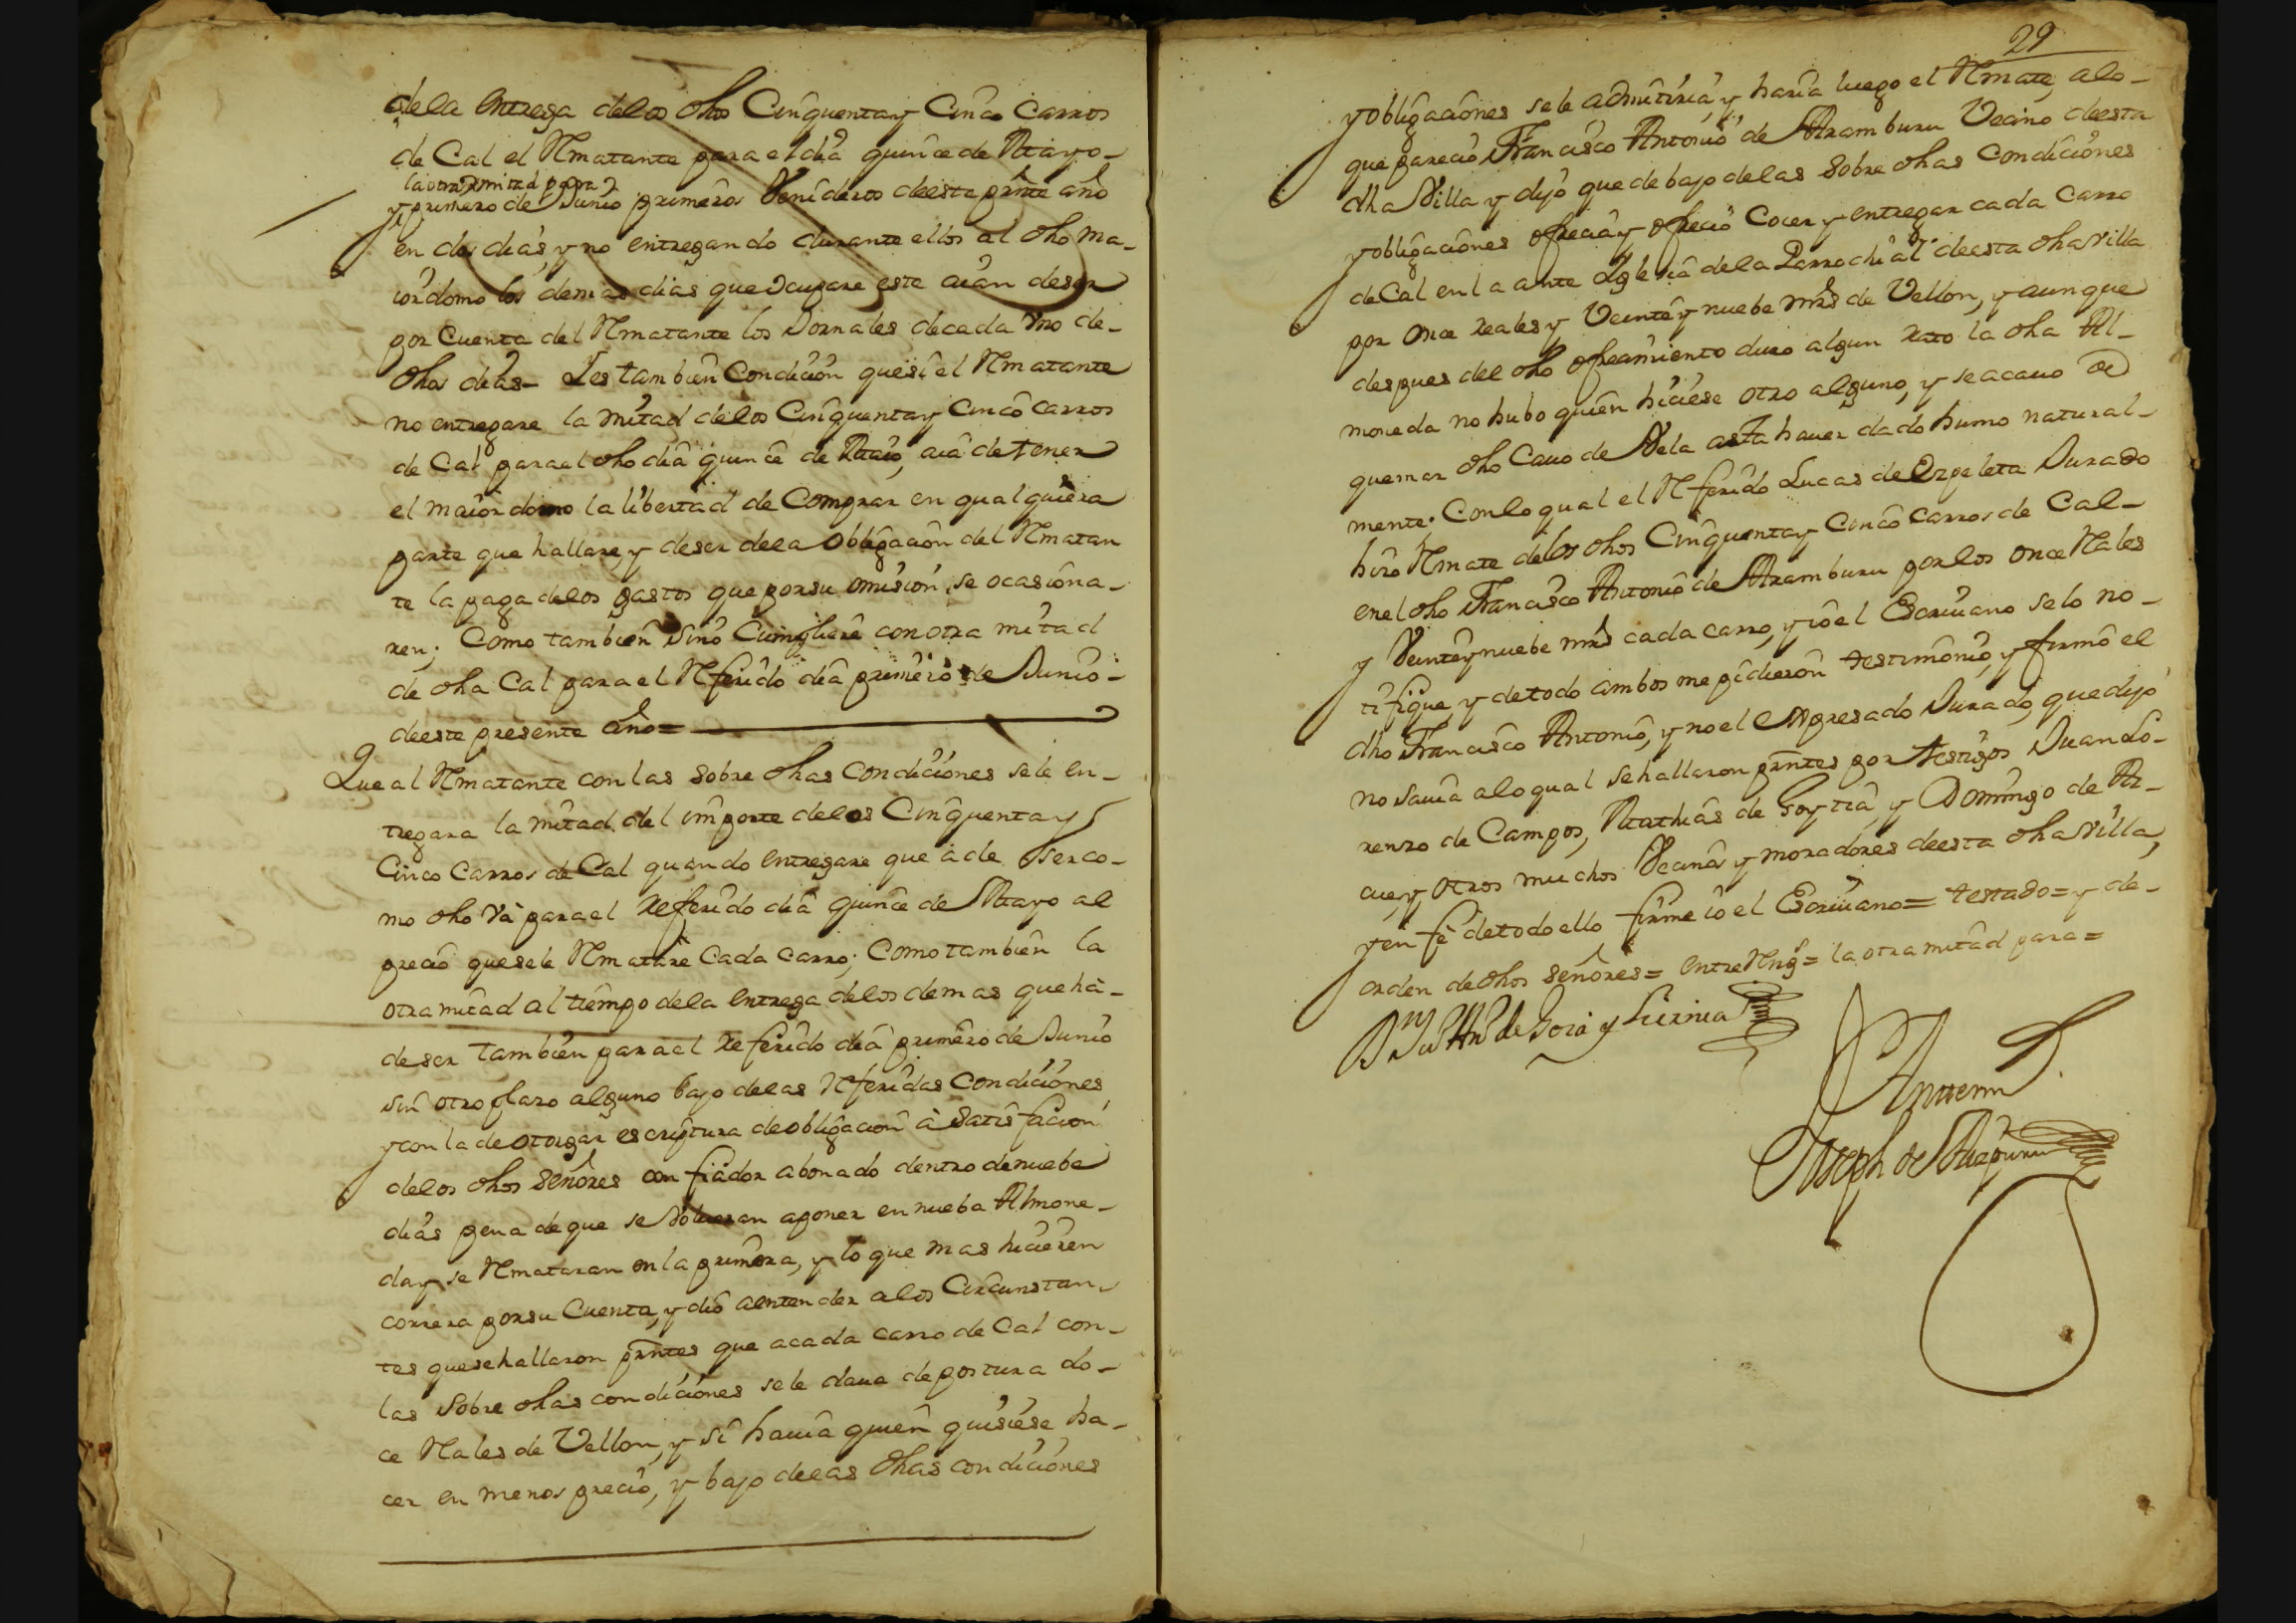 dela entrega delos dhos Cinquenta y Cinco Carros
de Cal el Rmatante para el dia quince de Mayo
la otra mitad para
y primero de Junio primeros Venideros deeste prnte año
en dos dias, y no entregando durante ellos al dho ma-
iordomo los demas dias que ocupare este aian deser
por Cuenta del Rmatante los Jornales decada vno de-
dhos dias = Ies tambien Condicion que si el Rmatante
no entregare la mitad delos Cinquenta y Cinco carros
de Cal para el dho dia quince de Maio, aia de tener
el maiordomo la libertad de Comprar en qualquiera
parte que hallare, y deser dela obligacion del Rmatan
te la paga delos gastos que por su omision se ocasiona-
ren; Como tambien sino Cumpliere con otra mitad
de dha Cal para el Rferido dia primero de Junio-
deeste presente año =
Que al Rmatante con las sobre dhas condiciones sele en-
tregara la mitad del importe delos Cinquenta y
Cinco Carros de Cal quando entregare que ade ser co-
mo dho vá para el referido dia quince de Mayo al
precio que sele Rmatare Cada Carro; Como tambien la
otra mitad al tiempo dela entrega delos demas que ha-
deser tambien para el referido dia primero de Junio
sin otro plazo alguno bajo delas Rferidas Condiciones,
y con la de otorgar escriptura de obligacion á satisfacion
delos dhos señores con fiador abonado dentro de nuebe
dias pena de que se bolueran aponer en nueba Almone-
da y se Rmataran en la primera, y lo que mas hicieren
correra por su Cuenta, y dió aentender alos Circunstan-
tes que se hallaron prntes que acada carro de Cal con-
las sobre dhas condiciones sele daua de postura do-
ce Rales de Vellon, y si hauia quien quisiese ha-
cer en menos precio, y bajo delas dhas condiciones
29
y obligaciones sele admitiria, y haria luego el Rmate, alo-
que parecio Francisco Antonio de Aramburu Vecino deesta
dha Villa y dijo que debajo delas sobre dhas Condiciones
y obligaciones ofrecia y ofrecio Cocer y entregar cada Carro
de Cal en la ante Iglesia dela Parrochial deesta dha villa
por once reales y Veinte y nuebe mrs de Vellon, y aunque
despues del dho ofrecimiento duro algun rato la dha Al-
moneda no hubo quien hiciese otro alguno, y se acauo de
quemar dho Cauo de Vela asta hauer dado humo natural-
mente. Con lo qual el Rferido Lucas de Ezpeleta Jurado
hizo Rmate delos dhos Cinquenta y Cinco carros de Cal-
en el dho Francisco Antonio de Aramburu por los once Rales
y Veinte y nuebe mrs cada carro, y io el Escriuano selo no-
tifique, y de todo ambos me pidieron testimonio, y firmó el
dho Francisco Antonio, y no el expresado Jurado, que dijo
no sauia alo qual se hallaron prntes por testigos Juan Lo-
renzo de Campos, Mathias de Goytia, y Domingo de Ar-
cue, y otros muchos Vecinos y moradores deesta dha Villa,
y en fé de todo ello firme io el Escriuano = testado = y de-
orden de dhos señores = entre Rngs = la otra mitad para =
Antte mi
Joseph de